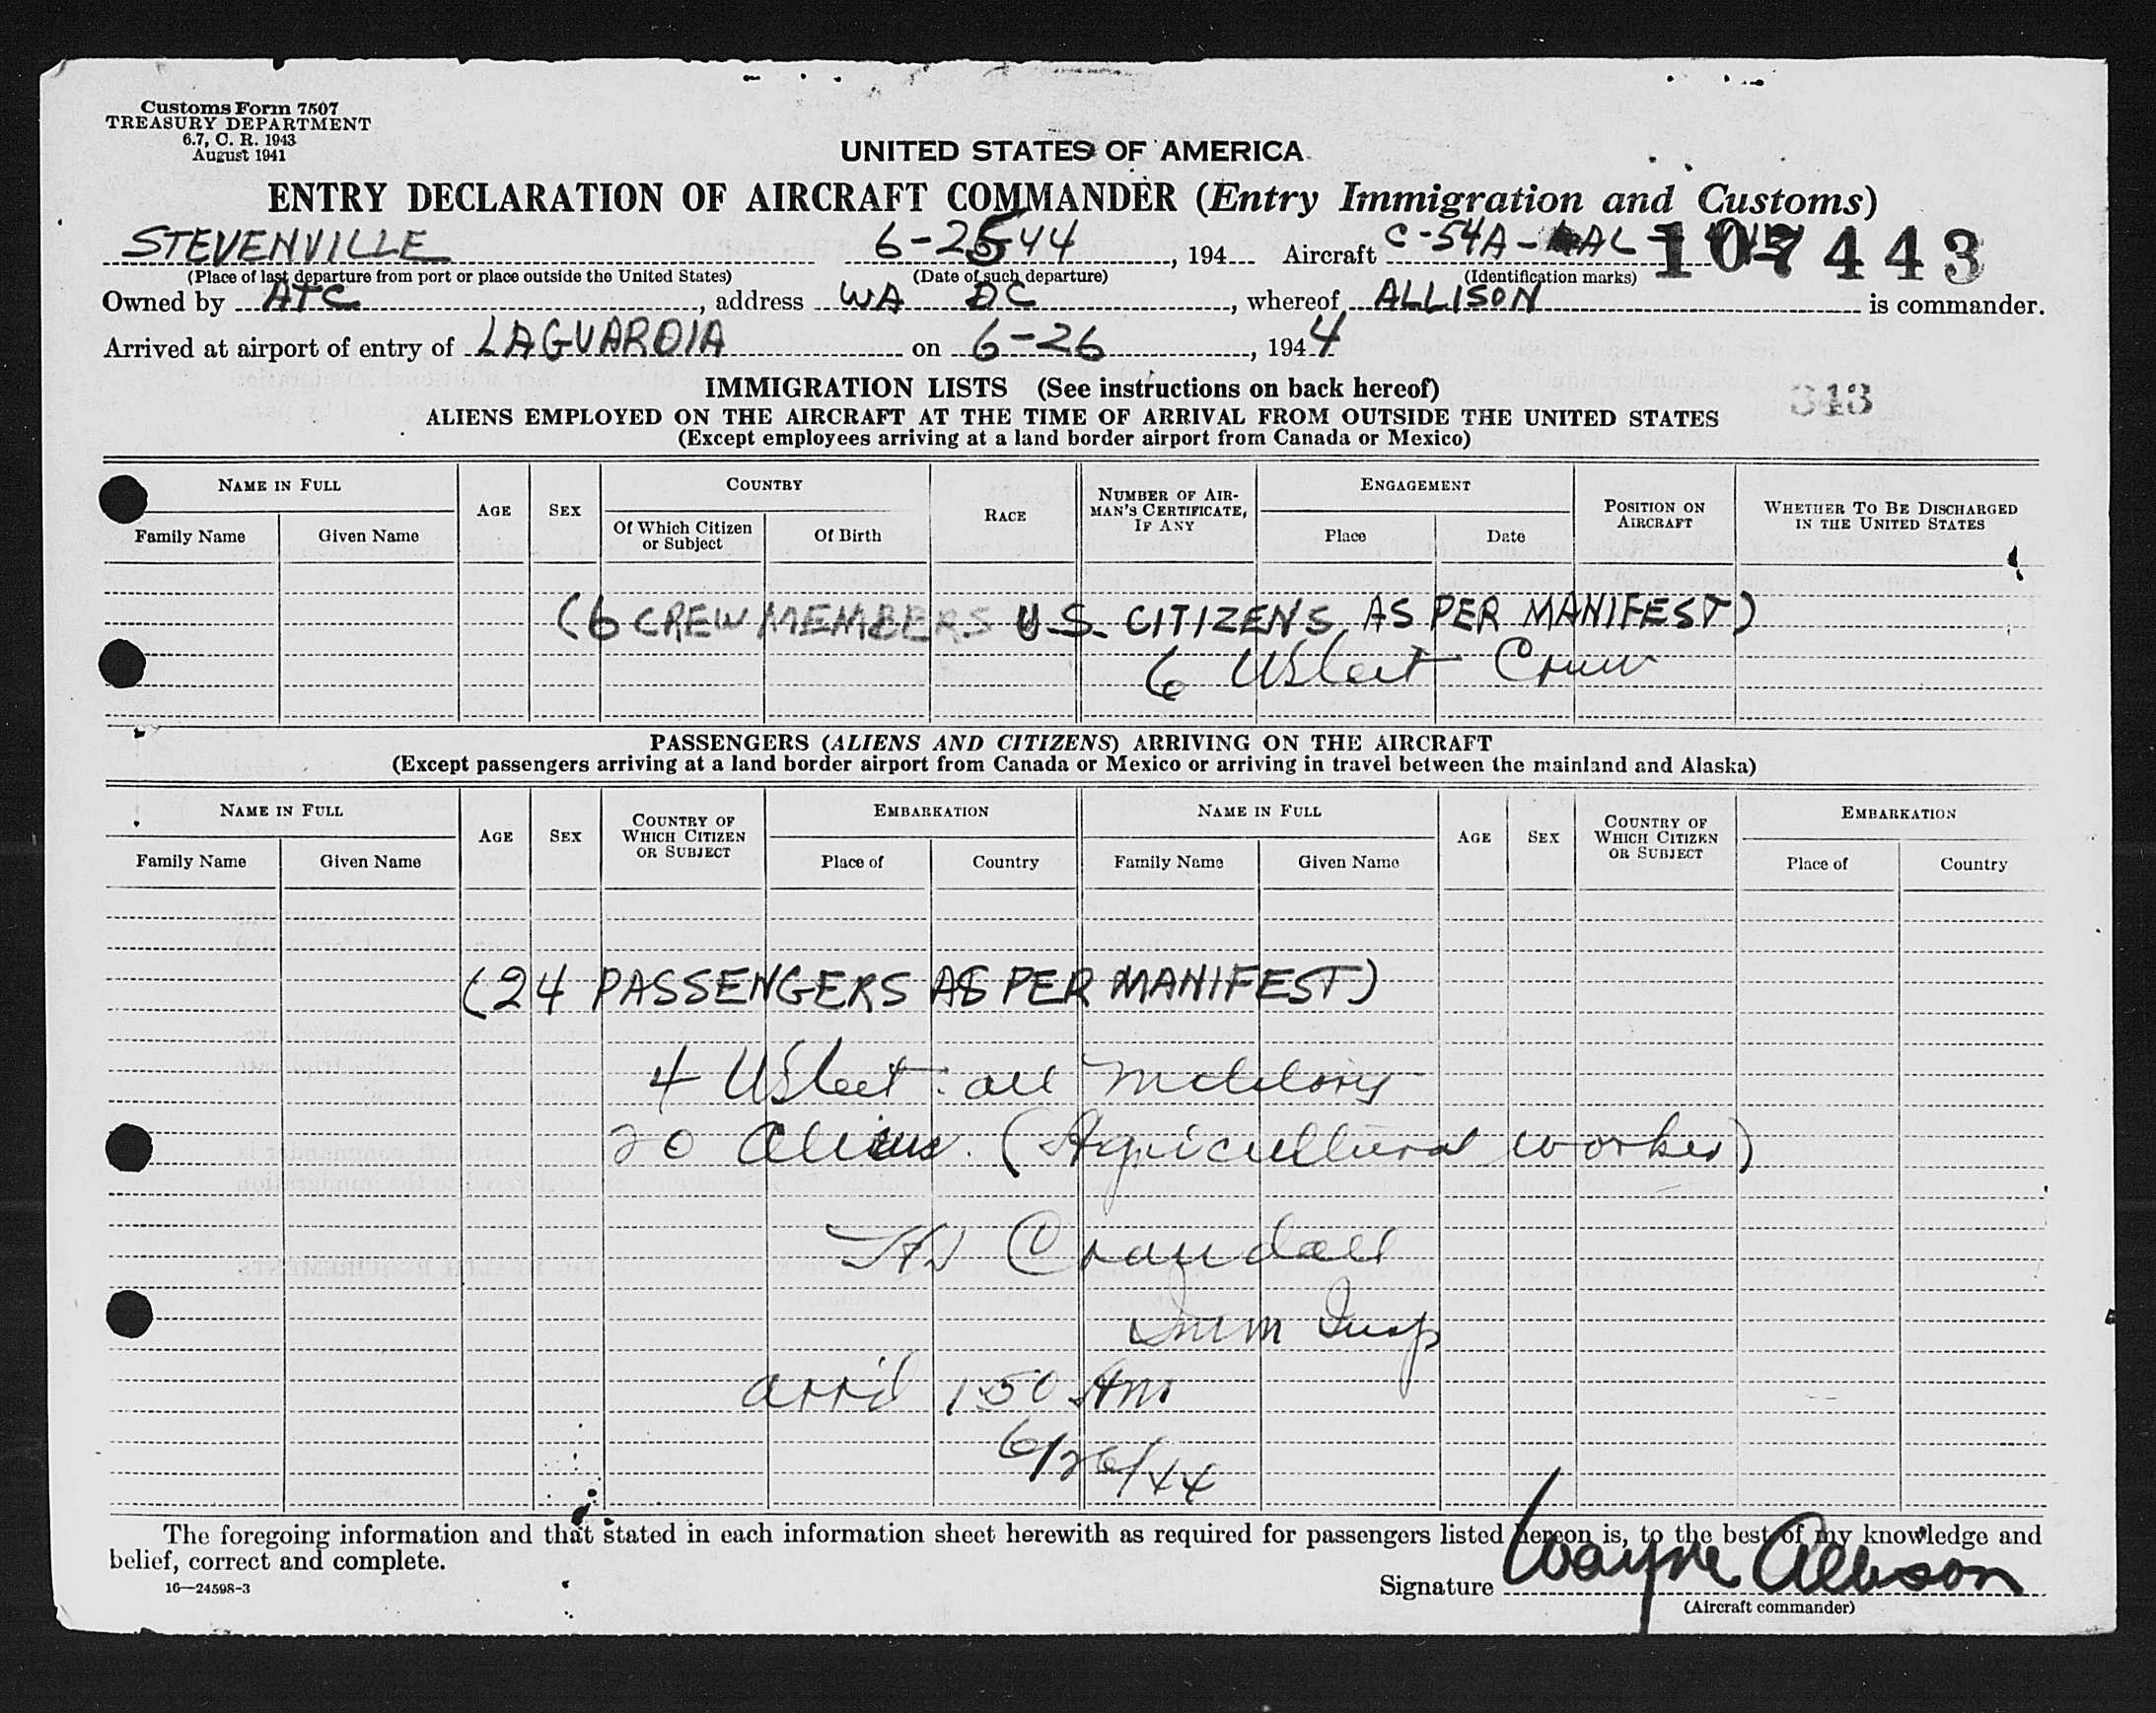 Customs Form 7507
TREASURY DEPARTMENT
6.7, C. R. 1943
August 1941
UNITED STATES OF AMERICA
ENTRY DECLARATION OF AIRCRAFT COMMANDER (Entry Immigration and Customs)
STEVENVILLE 6-25-44, 194 Aircraft C-54A- AL- 107443
(Place of last departure from port or place outside the United States) (Date of such departure) (Identification marks)
Owned by ATC, address WA DC, whereof ALLISON is commander.
Arrived at airport of entry of LAGUARDIA on 6-26, 1944
IMMIGRATION LISTS (See instructions on back hereof)
343
ALIENS EMPLOYED ON THE AIRCRAFT AT THE TIME OF ARRIVAL FROM OUTSIDE THE UNITED STATES
(Except employees arriving at a land border airport from Canada or Mexico)
NAME IN FULL AGE SEX COUNTRY RACE NUMBER OF AIRMAN'S CERTIFICATE, IF ANY ENGAGEMENT POSITION ON AIRCRAFT WHETHER TO BE DISCHARGED IN THE UNITED STATES
Family Name Given Name Of Which Citizen or Subject Of Birth Place Date
(6 CREW MEMBERS U.S. CITIZENS AS PER MANIFEST)
6 US Cit Crew
PASSENGERS (ALIENS AND CITIZENS) ARRIVING ON THE AIRCRAFT
(Except passengers arriving at a land border airport from Canada or Mexico or arriving in travel between the mainland and Alaska)
NAME IN FULL AGE SEX COUNTRY OF WHICH CITIZEN OR SUBJECT EMBARKATION NAME IN FULL AGE SEX COUNTRY OF WHICH CITIZEN OR SUBJECT EMBARKATION
Family Name Given Name Place of Country Family Name Given Name Place of Country
(24 PASSENGERS AS PER MANIFEST)
4 US Cit. all Military
20 Aliens. (Agricultural workers)
Crandall
Imm Insp
arrd 150 AM
6/26/44
The foregoing information and that stated in each information sheet herewith as required for passengers listed hereon is, to the best of my knowledge and
belief, correct and complete.
16—24598-3
Signature Wayne Allison
(Aircraft commander)